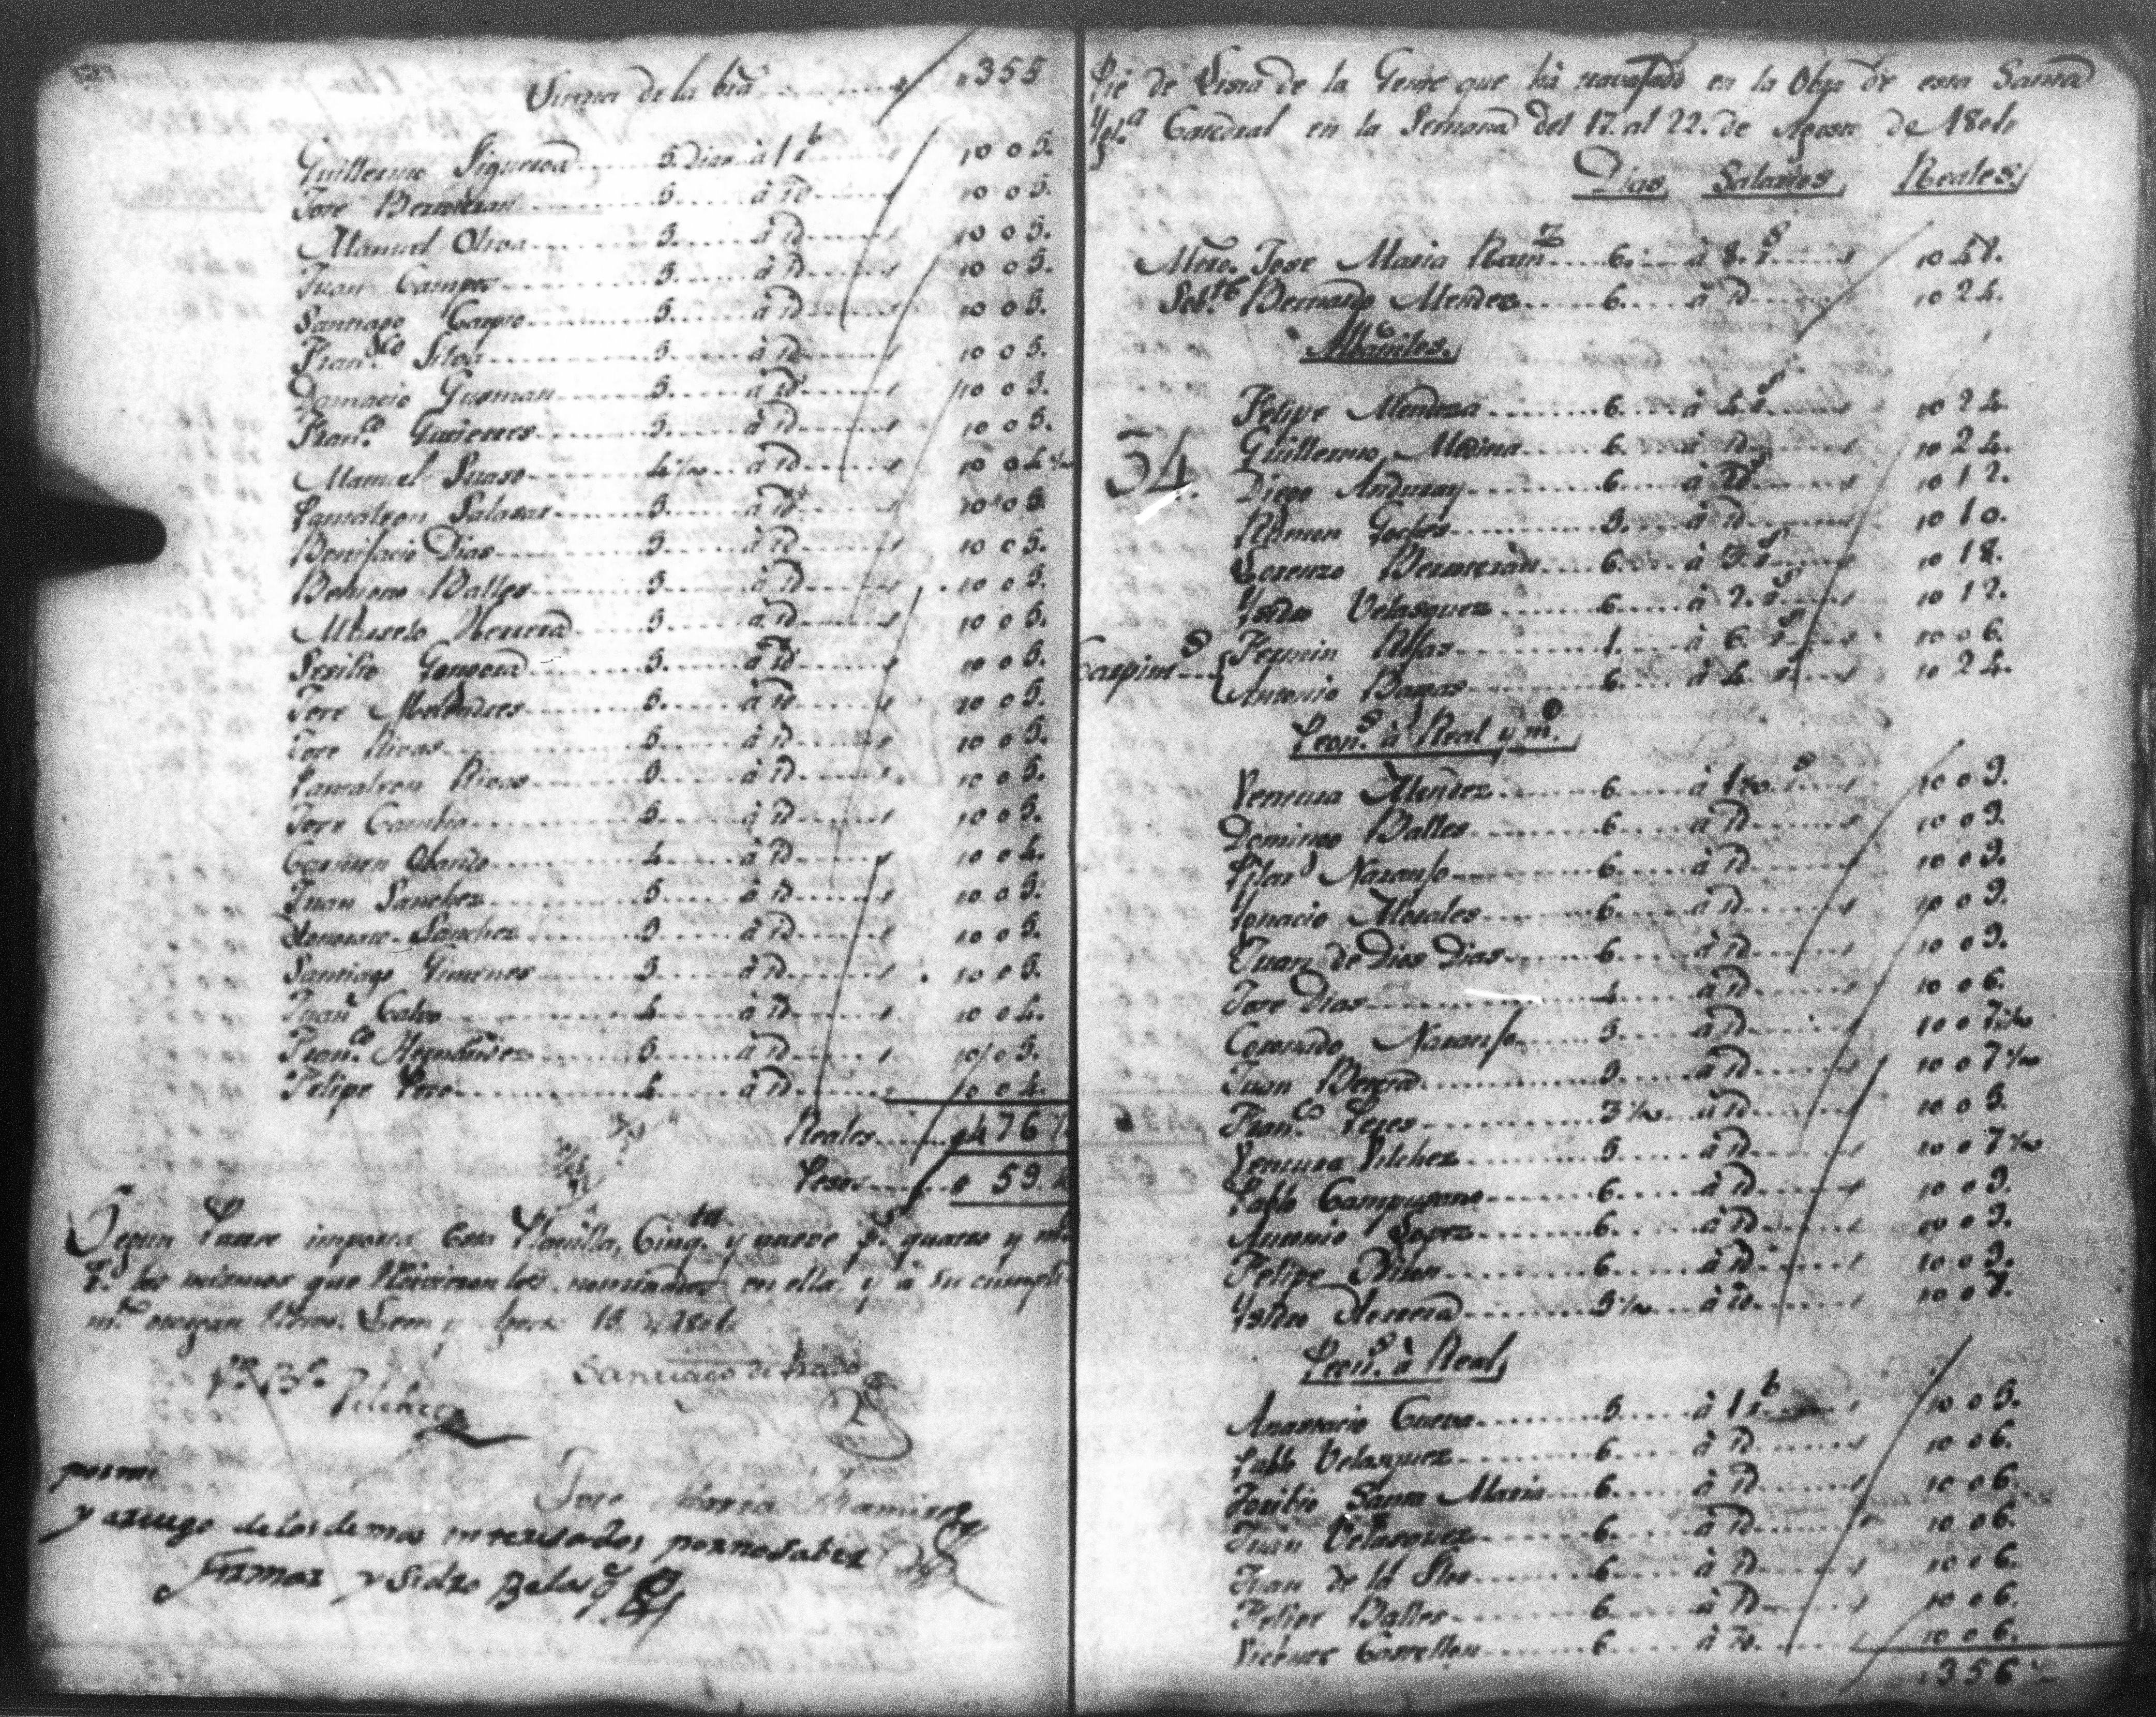 Suma de la bta 355
Guillermo Figueroa 5. Dias à 1 r 10 0 5.
Jose Bermudes 5. à id 10 0 5.
Manuel Oliva 5. à id 10 0 5.
Juan Campos 5. à id 10 0 5.
Santiago Carpio 5. à id 10 0 5.
Fran.co Silva 5. à id 10 0 5.
Damacio Gusman 5. à id 10 0 5.
Fran.co Gutierres 5. à id 10 0 5.
Manuel Suaso 4 1/2 à id 10 0 4 1/2
Pantaleon Salasar 5. à id 10 0 5.
Bonifacio Dias 5. à id 10 0 5.
Balles 5. à id 10 0 5.
Herrera 5. à id 10 0 5.
Sesilio Gongora 5. à id 10 0 5.
Jose Melendres 5. à id 10 0 5.
Jose Rivas 5. à id 10 0 5.
Pantaleon Rivas 5. à id 10 0 5.
Jose 5. à id 10 0 5.
Carmen Obando 4. à id 10 0 4.
Juan Sanchez 5. à id 10 0 5.
Sanchez 5. à id 10 0 5.
Santiago Gimenes 5. à id 10 0 5.
Juan Calvo 4. à id 10 0 4.
Fran.co Hernandez 5. à id 10 0 5.
Felipe Pozo 4. à id 10 0 4.
Reales 476
Pesos 59.4
Segun Parece importa esta Planilla, Cinq.ta y nueve p.s quatro y m.o
r.s los mismos que Recivieron los nominados en ella, y à su cumpli
m.to Leon y Agosto 15
Pilchez
Santiago de Prado
por mi
Jose Maria Ramires
y aruego de los demas interesados por no saber
firmar Ysidro Belasq.
Pie de Lista de la Gente que hà travajado en la Obra de esta Santa
Ygl.a Catedral en la Semana del 17. al 22. de Agosto de 1801
Dias, Salarios, Reales,
Mtro. Jose Maria Ram.z 6. à 8. r.s 10 48.
Sob.te Bernardo Mendez 6. à id 10 24.
Albañiles.
Felipe Mendoza 6. à 4. r.s 10 24.
34.
Guillermo Medina 6. à id 10 24.
Diego Anduray 6. à 2 r.s 10 12.
Ramon 5. à id 10 10.
Lorenzo Bermudes 6. à 3. r.s 10 18.
Ysidro Velasquez 6. à 2. r.s 10 12.
Carpint.s
Fermin Rosas 1. à 6. r.s 10 0 6.
Antonio Bargas 6. à 4 r.s 10 24.
Peon.s à Real y m.o
Ventura Mendez 6. à 1 1/2 r.s 10 0 9.
Domingo Balles 6. à id 10 0 9.
Pilar Naranjo 6. à id 10 0 9.
Ygnacio Morales 6. à id 10 0 9.
Juan de Dios Dias 6. à id 10 0 9.
Jose Dias 4. à id 10 0 6.
Coronado Naranjo 5. à id 10 0 7 1/2
Juan 5. à id 10 0 7 1/2
Fran.co Peres 3 1/2 à id 10 0 5.
Ventura Pilchez 5. à id 10 0 7 1/2
Pablo Campusano 6. à id 10 0 9.
Antonio Lopez 6. à id 10 0 9.
Felipe 6. à id 10 0 9.
Ysidro Herrera 5 1/2 à id 10 0 8.
Peon.s à Real,
Anastacio Cueva 5. à 1 r 10 0 5.
Pablo Velasquez 6. à id 10 0 6.
Toribio Santa Maria 6. à id 10 0 6.
Juan Velasquez 6. à id 10 0 6.
Juan de la 6. à id 10 0 6.
Felipe Balles 6. à id 10 0 6.
Vicente Castellon 6. à id 10 0 6.
356